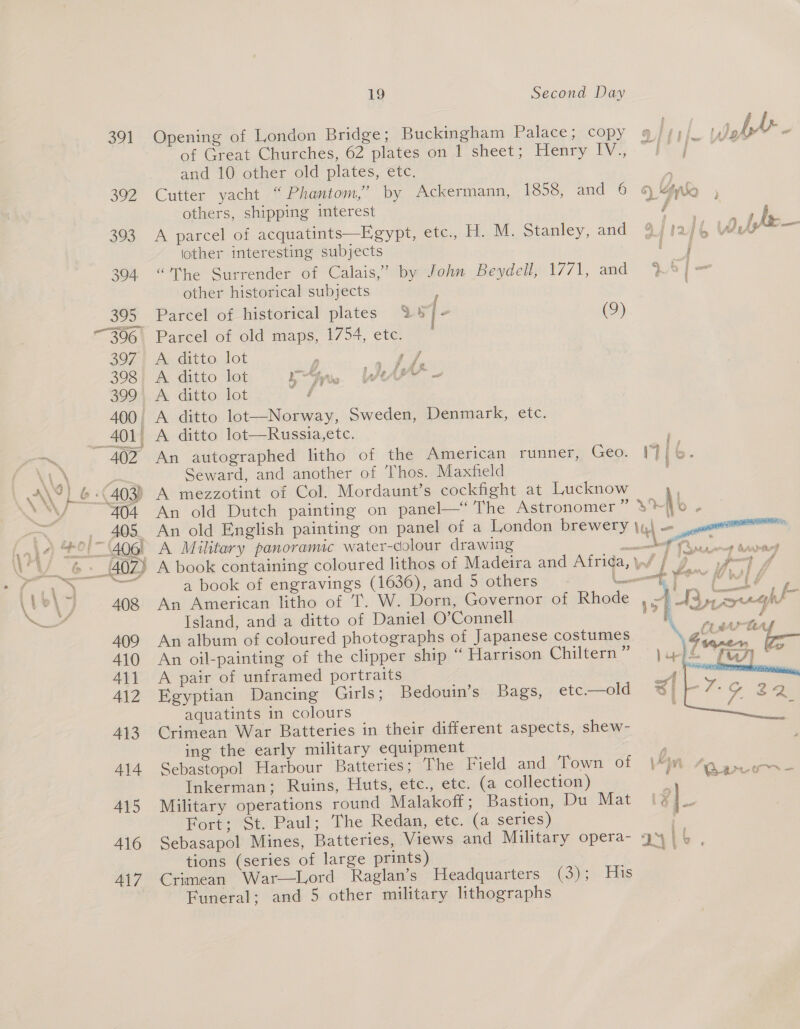 19 Second Day
391 Opening of London Bridge; Buckingham Palace; copy
of Great Churches, 62 plates on 1 sheet; Henry IV.,
and 10 other old plates, etc.
392 Cutter yacht “Phantom,” by Ackermann, 1858, and 6
others, shipping interest
393 A parcel of acquatints—Egypt, etc., H. M. Stanley, and
other interesting subjects
394 “The Surrender of Calais,” by John Beydell, 1771, and
other historical subjects
395 Parcel of historical plates (9)
396 Parcel of old maps, 1754, etc.
397 A ditto lot
398 A ditto lot
399 A ditto lot
400 A ditto lot—Norway, Sweden, Denmark, etc.
401 A ditto lot—Russia,etc.
402 An autographed litho of the American runner, Geo.
Seward, and another of Thos. Maxfield
403 A mezzotint of Col. Mordaunt’s cockfight at Lucknow
404 An old Dutch painting on panel—“The Astronomer”
405 An old English painting on panel of a London brewery
406 A Military panoramic water-colour drawing
407 A book containing coloured lithos of Madeira and Africa,
a book of engravings (1636), and 5 others
408 An American litho of T. W. Dorn, Governor of Rhode
Island, and a ditto of Daniel O’Connell
409 An album of coloured photographs of Japanese costumes
410 An oil-painting of the clipper ship “Harrison Chiltern”
411 A pair of unframed portraits
412 Egyptian Dancing Girls; Bedouin’s Bags, etc.—old
aquatints in colours
413 Crimean War Batteries in their different aspects, shew-
ing the early military equipment
414 Sebastopol Harbour Batteries; The Field and Town of
Inkerman; Ruins, Huts, etc., etc. (a collection)
415 Military operations round Malakoff; Bastion, Du Mat
Fort; St. Paul; The Redan, etc. (a series)
416 Sebasapol Mines, Batteries, Views and Military opera-
tions (series of large prints)
417 Crimean War—Lord Raglan’s Headquarters (3); His
Funeral; and 5 other military lithographs